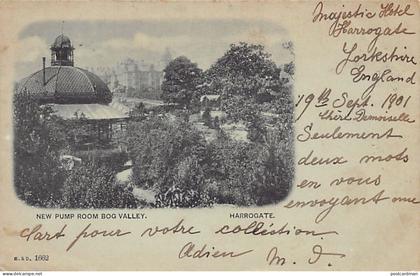 Majestic Hotel
Harrogate
Yorkshire
England
19th Sept. 1901
Chère Demoiselle
Seulement
deux mots
en vous
envoyant une
NEW PUMP ROOM BOG VALLEY.
HARROGATE.
Cart pour votre collection
E. & D. 1662
Adieu M. J.